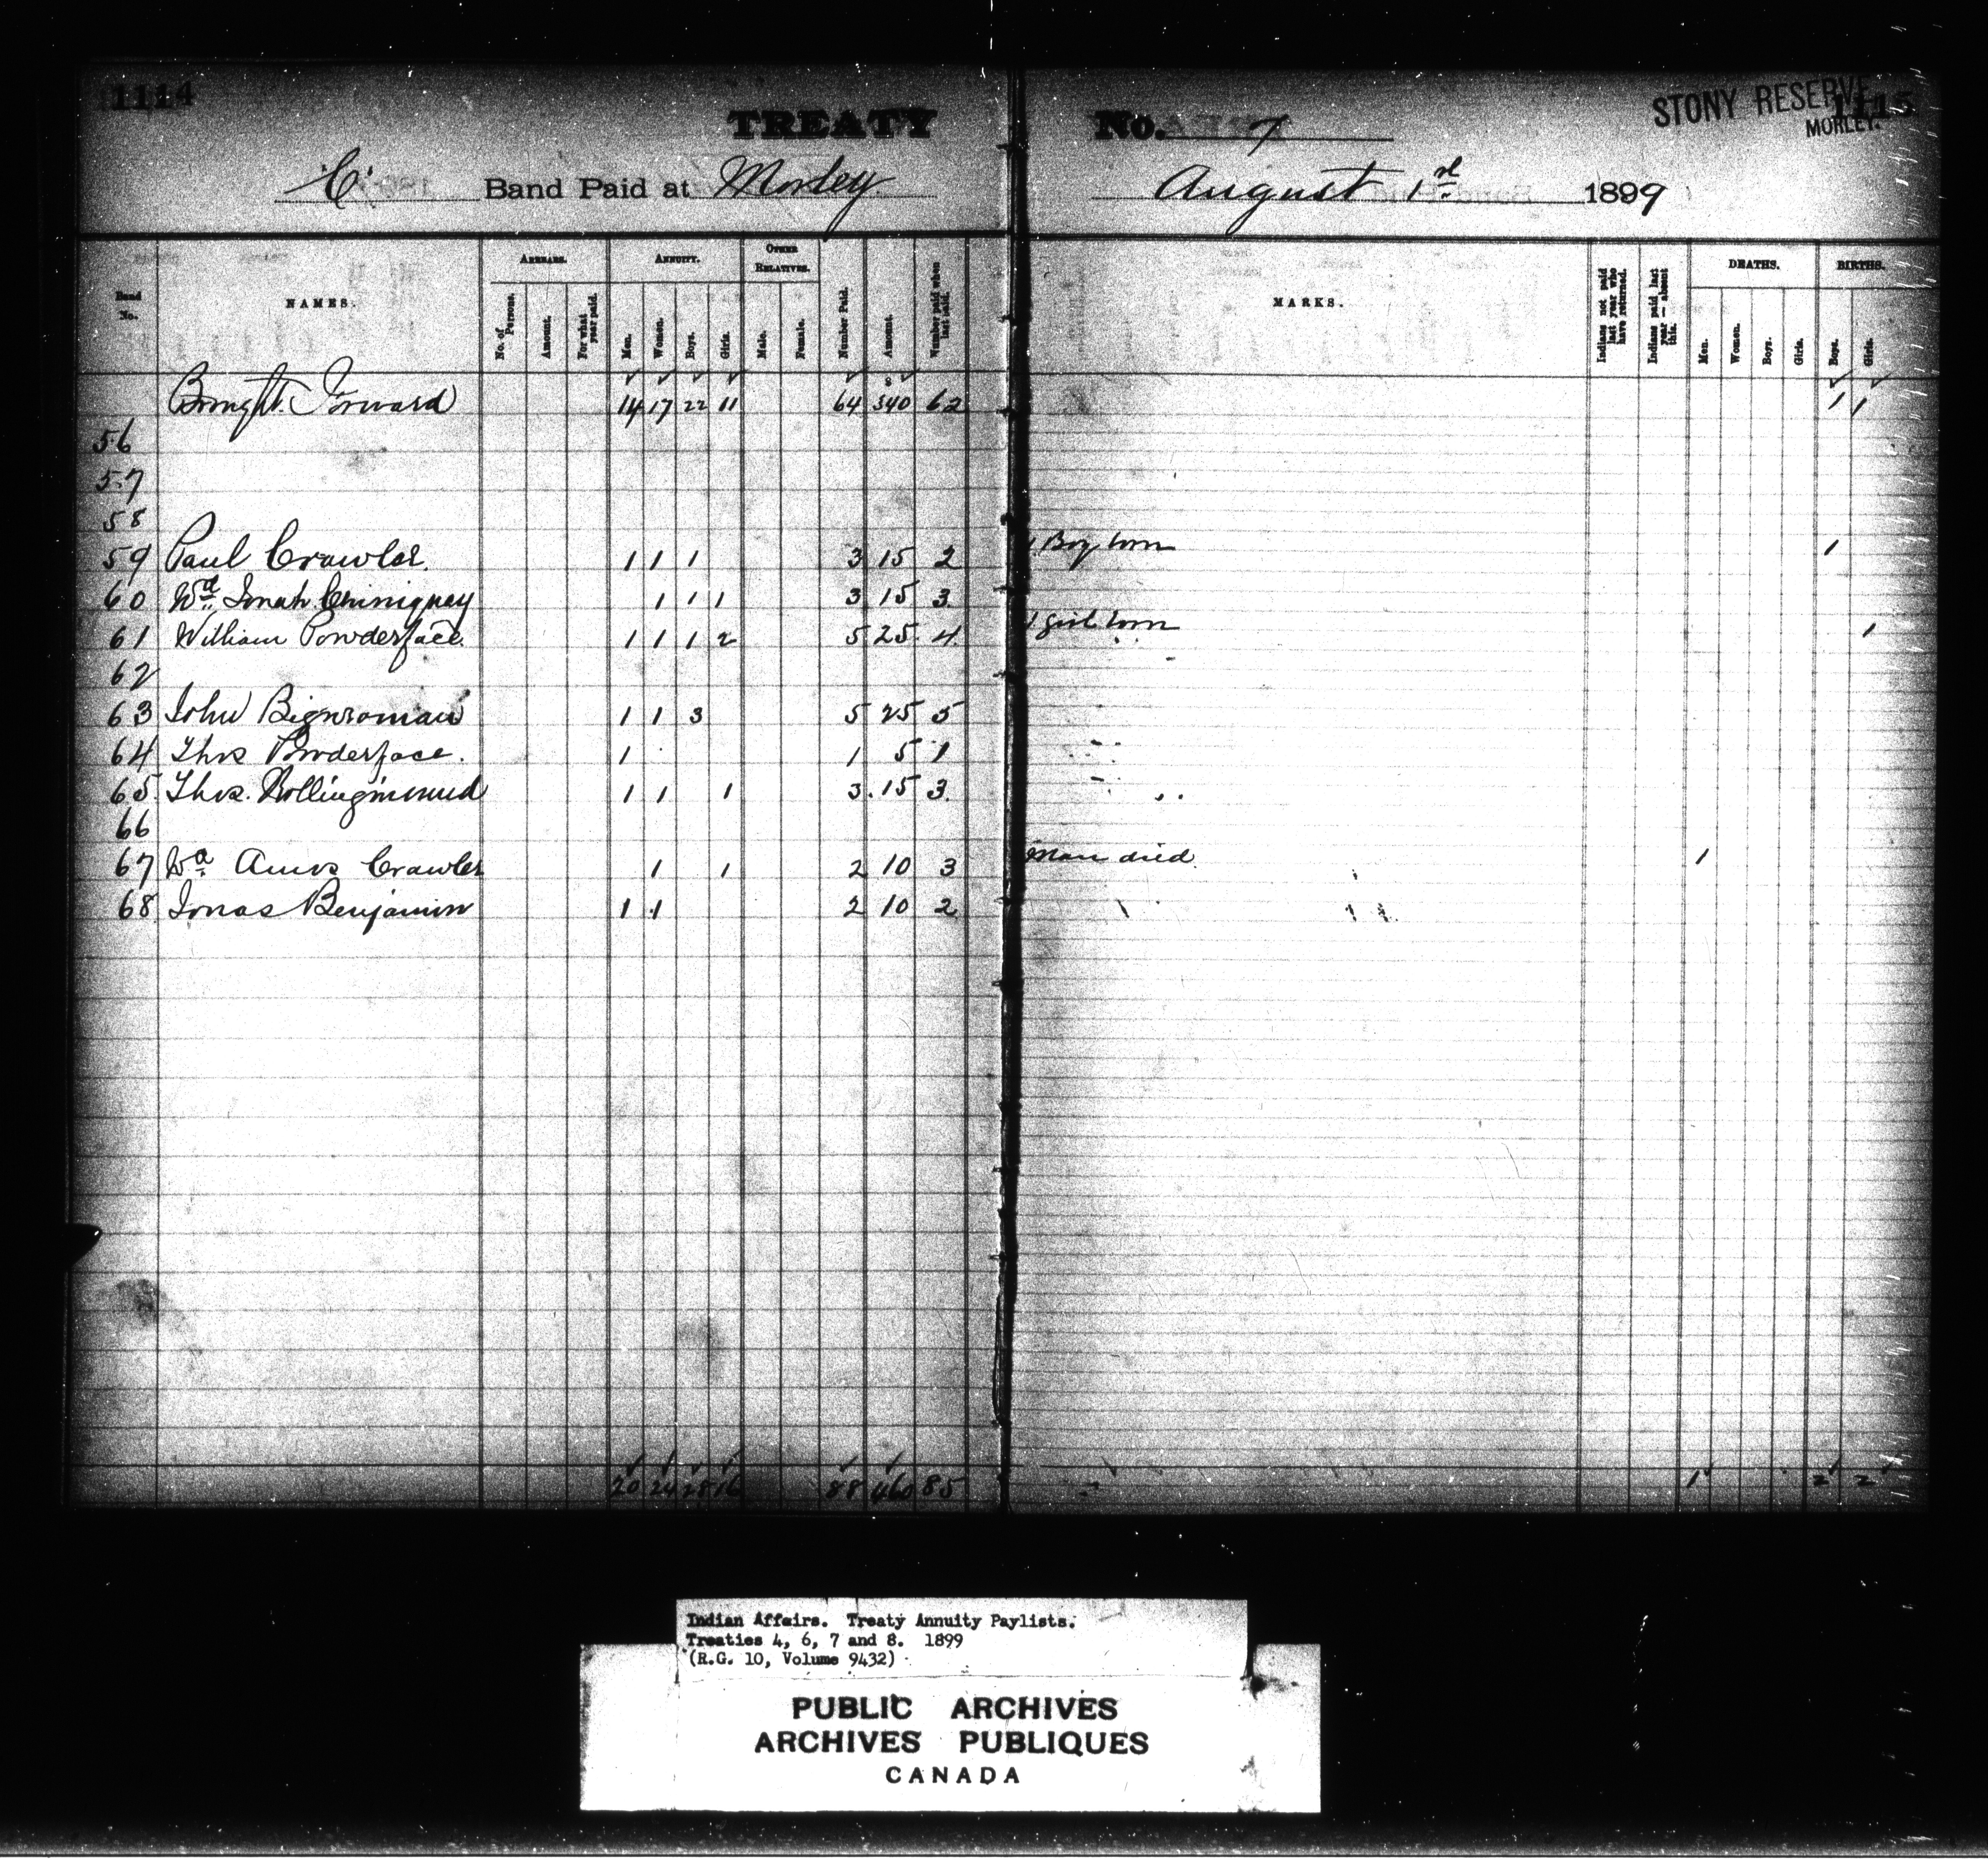 1114
TREATY No. 7
STONY RESERVE
1115
MORLEY.
"C" Band Paid at Morley August 1st 1899
Band No.
NAMES.
ARREARS.
No. of Persons.
Amount.
For what year paid.
ANNUITY.
Men.
Women.
Boys.
Girls.
OTHER RELATIVES.
Male.
Female.
Number Paid.
Amount.
Number paid when last paid.
MARKS.
Indians not paid last year who have returned.
Indians paid last year — absent this.
DEATHS.
Men.
Women.
Boys.
Girls.
BIRTHS.
Boys.
Girls.
Brought Forward 14 17 22 11 64 $ 340 62 1 1
56
57
58
59 Paul Crawler. 1 1 1 3 15 2 1 Boy born 1
60 Wd. Jonah Chiniquay 1 1 1 3 15 3
61 William Powderface. 1 1 1 2 5 25 4 1 girl born 1
62
63 John Bigwoman 1 1 3 5 25 5
64 Thos Powderface. 1 1 5 1
65 Thos. Rollinginmud 1 1 1 3 15 3
66
67 Wd. Amos Crawler 1 1 2 10 3 Man died 1
68 Jonas Benjamin 1 1 2 10 2
20 24 28 16 88 460 85 1 2 2
Indian Affairs. Treaty Annuity Paylists.
Treaties 4, 6, 7 and 8. 1899
(R.G. 10, Volume 9432)
PUBLIC ARCHIVES
ARCHIVES PUBLIQUES
CANADA